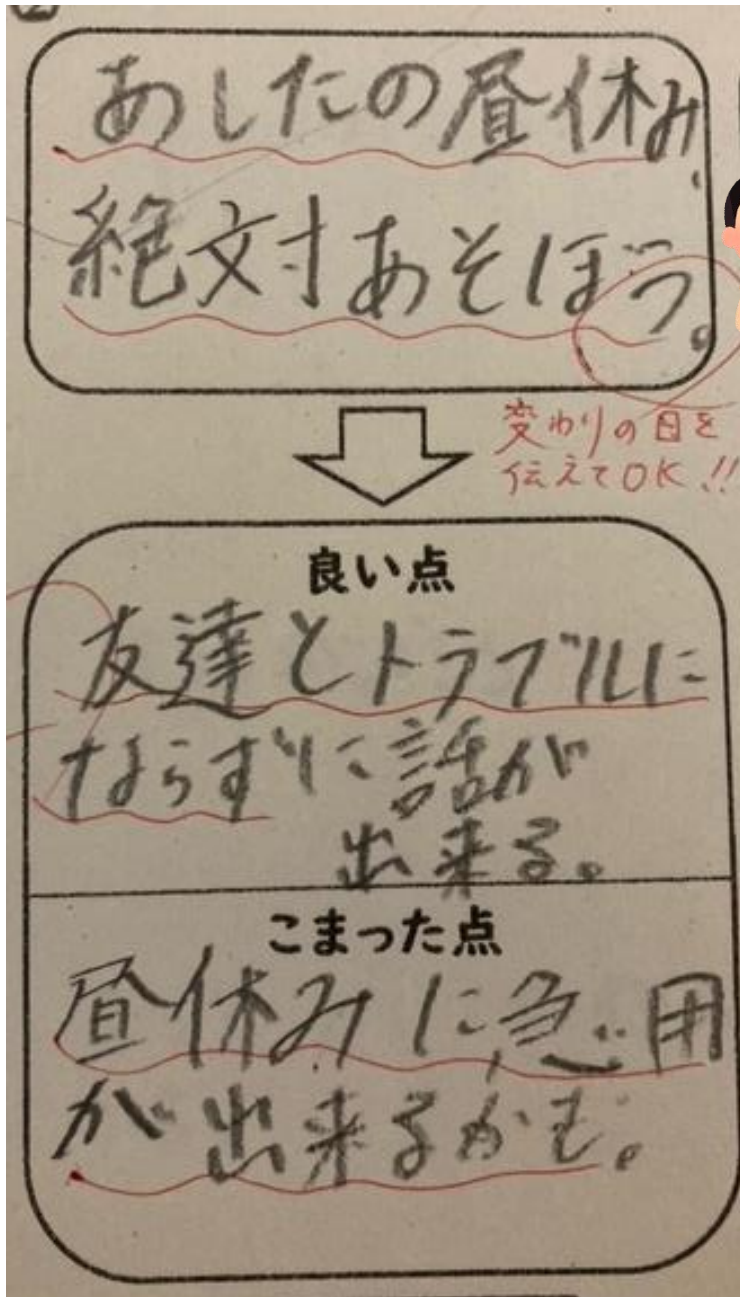 あしたの昼休み、
絶対あそぼう。
変わりの日を
伝えてOK!!
良い点
友達とトラブルに
ならずに話が
出来る。
こまった点
昼休みに急用
が出来るかも。